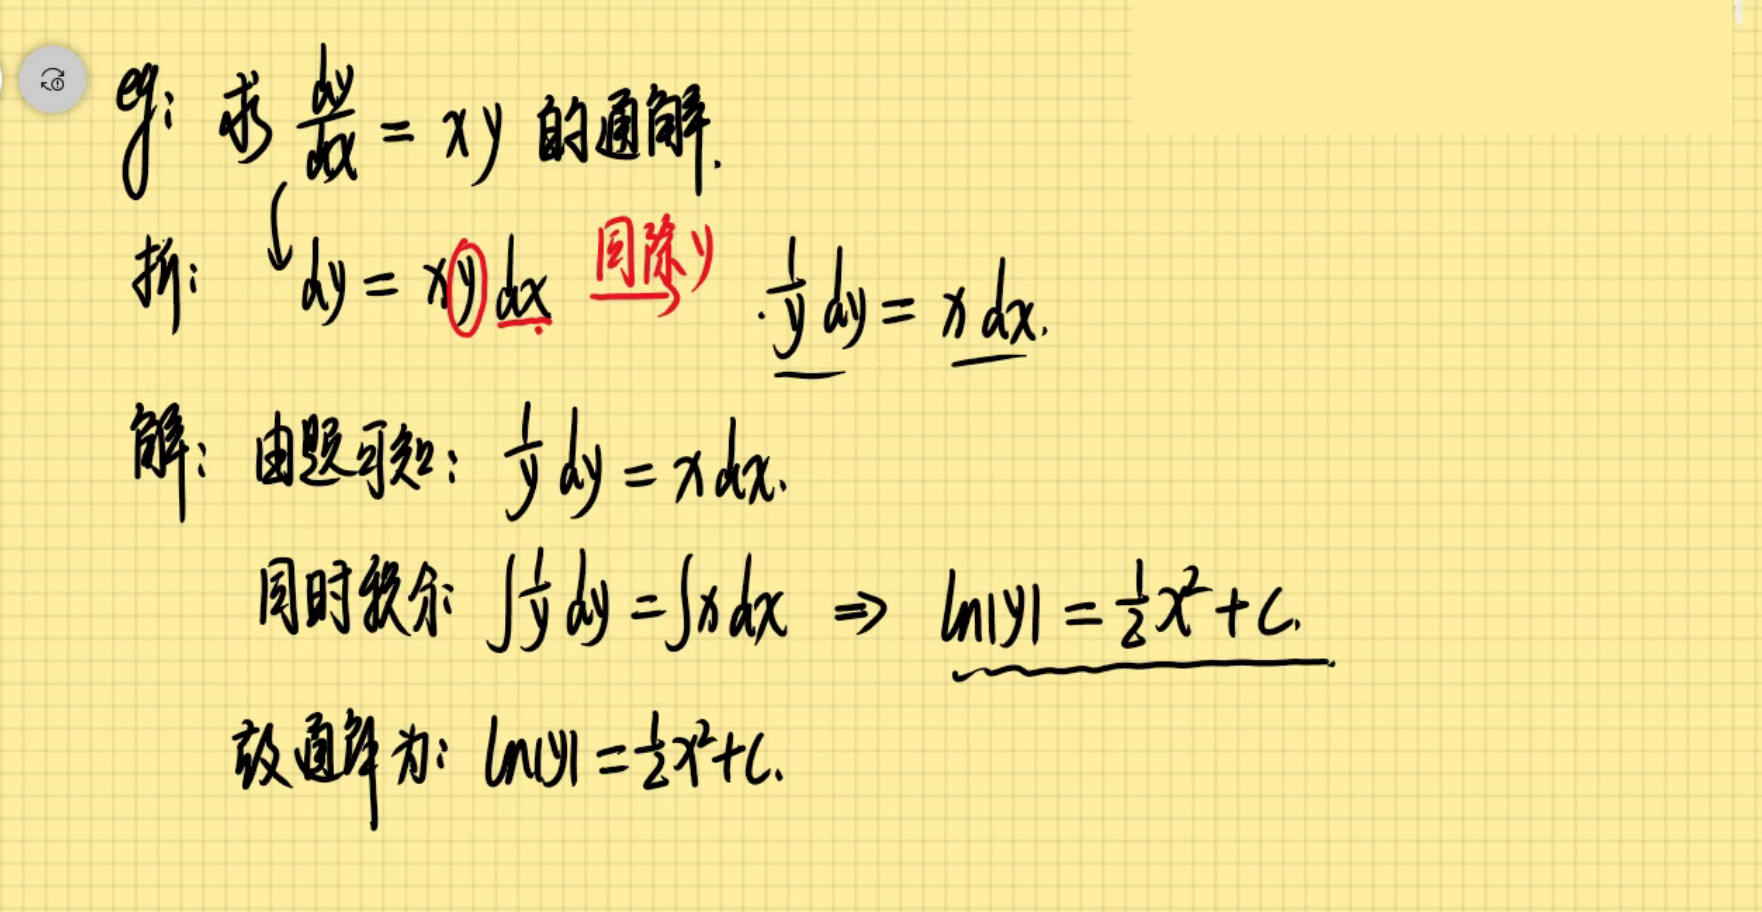 eg: 求 dy/dx = xy 的通解.
拆: dy = xy dx 同除y 1/y dy = x dx.
解: 由题可知: 1/y dy = x dx.
同时积分: ∫1/y dy = ∫x dx ⇒ ln|y| = 1/2 x² + C.
故通解为: ln|y| = 1/2 x² + C.